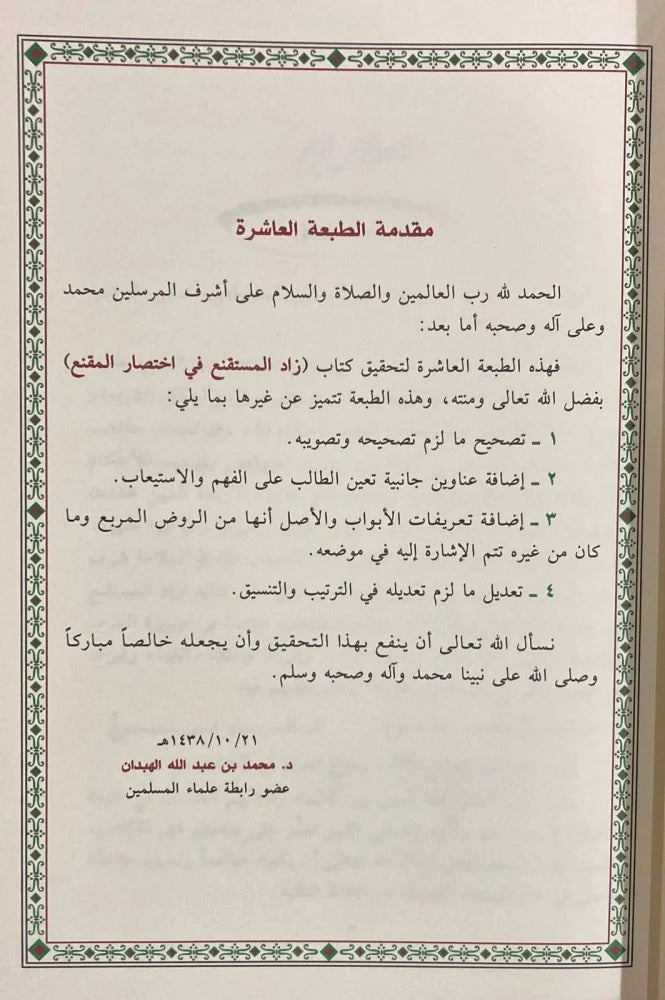 مقدمة الطبعة العاشرة
الحمد لله رب العالمين والصلاة والسلام على أشرف المرسلين محمد
وعلى آله وصحبه أما بعد:
فهذه الطبعة العاشرة لتحقيق كتاب (زاد المستقنع في اختصار المقنع)
بفضل الله تعالى ومنته، وهذه الطبعة تتميز عن غيرها بما يلي:
١ ـ تصحيح ما لزم تصحيحه وتصويبه.
٢ ـ إضافة عناوين جانبية تعين الطالب على الفهم والاستيعاب.
٣ ـ إضافة تعريفات الأبواب والأصل أنها من الروض المربع وما
كان من غيره تتم الإشارة إليه في موضعه.
٤ ـ تعديل ما لزم تعديله في الترتيب والتنسيق.
نسأل الله تعالى أن ينفع بهذا التحقيق وأن يجعله خالصاً مباركاً
وصلى الله على نبينا محمد وآله وصحبه وسلم.
١٤٣٨/١٠/٢١هـ
د. محمد بن عبد الله الهبدان
عضو رابطة علماء المسلمين